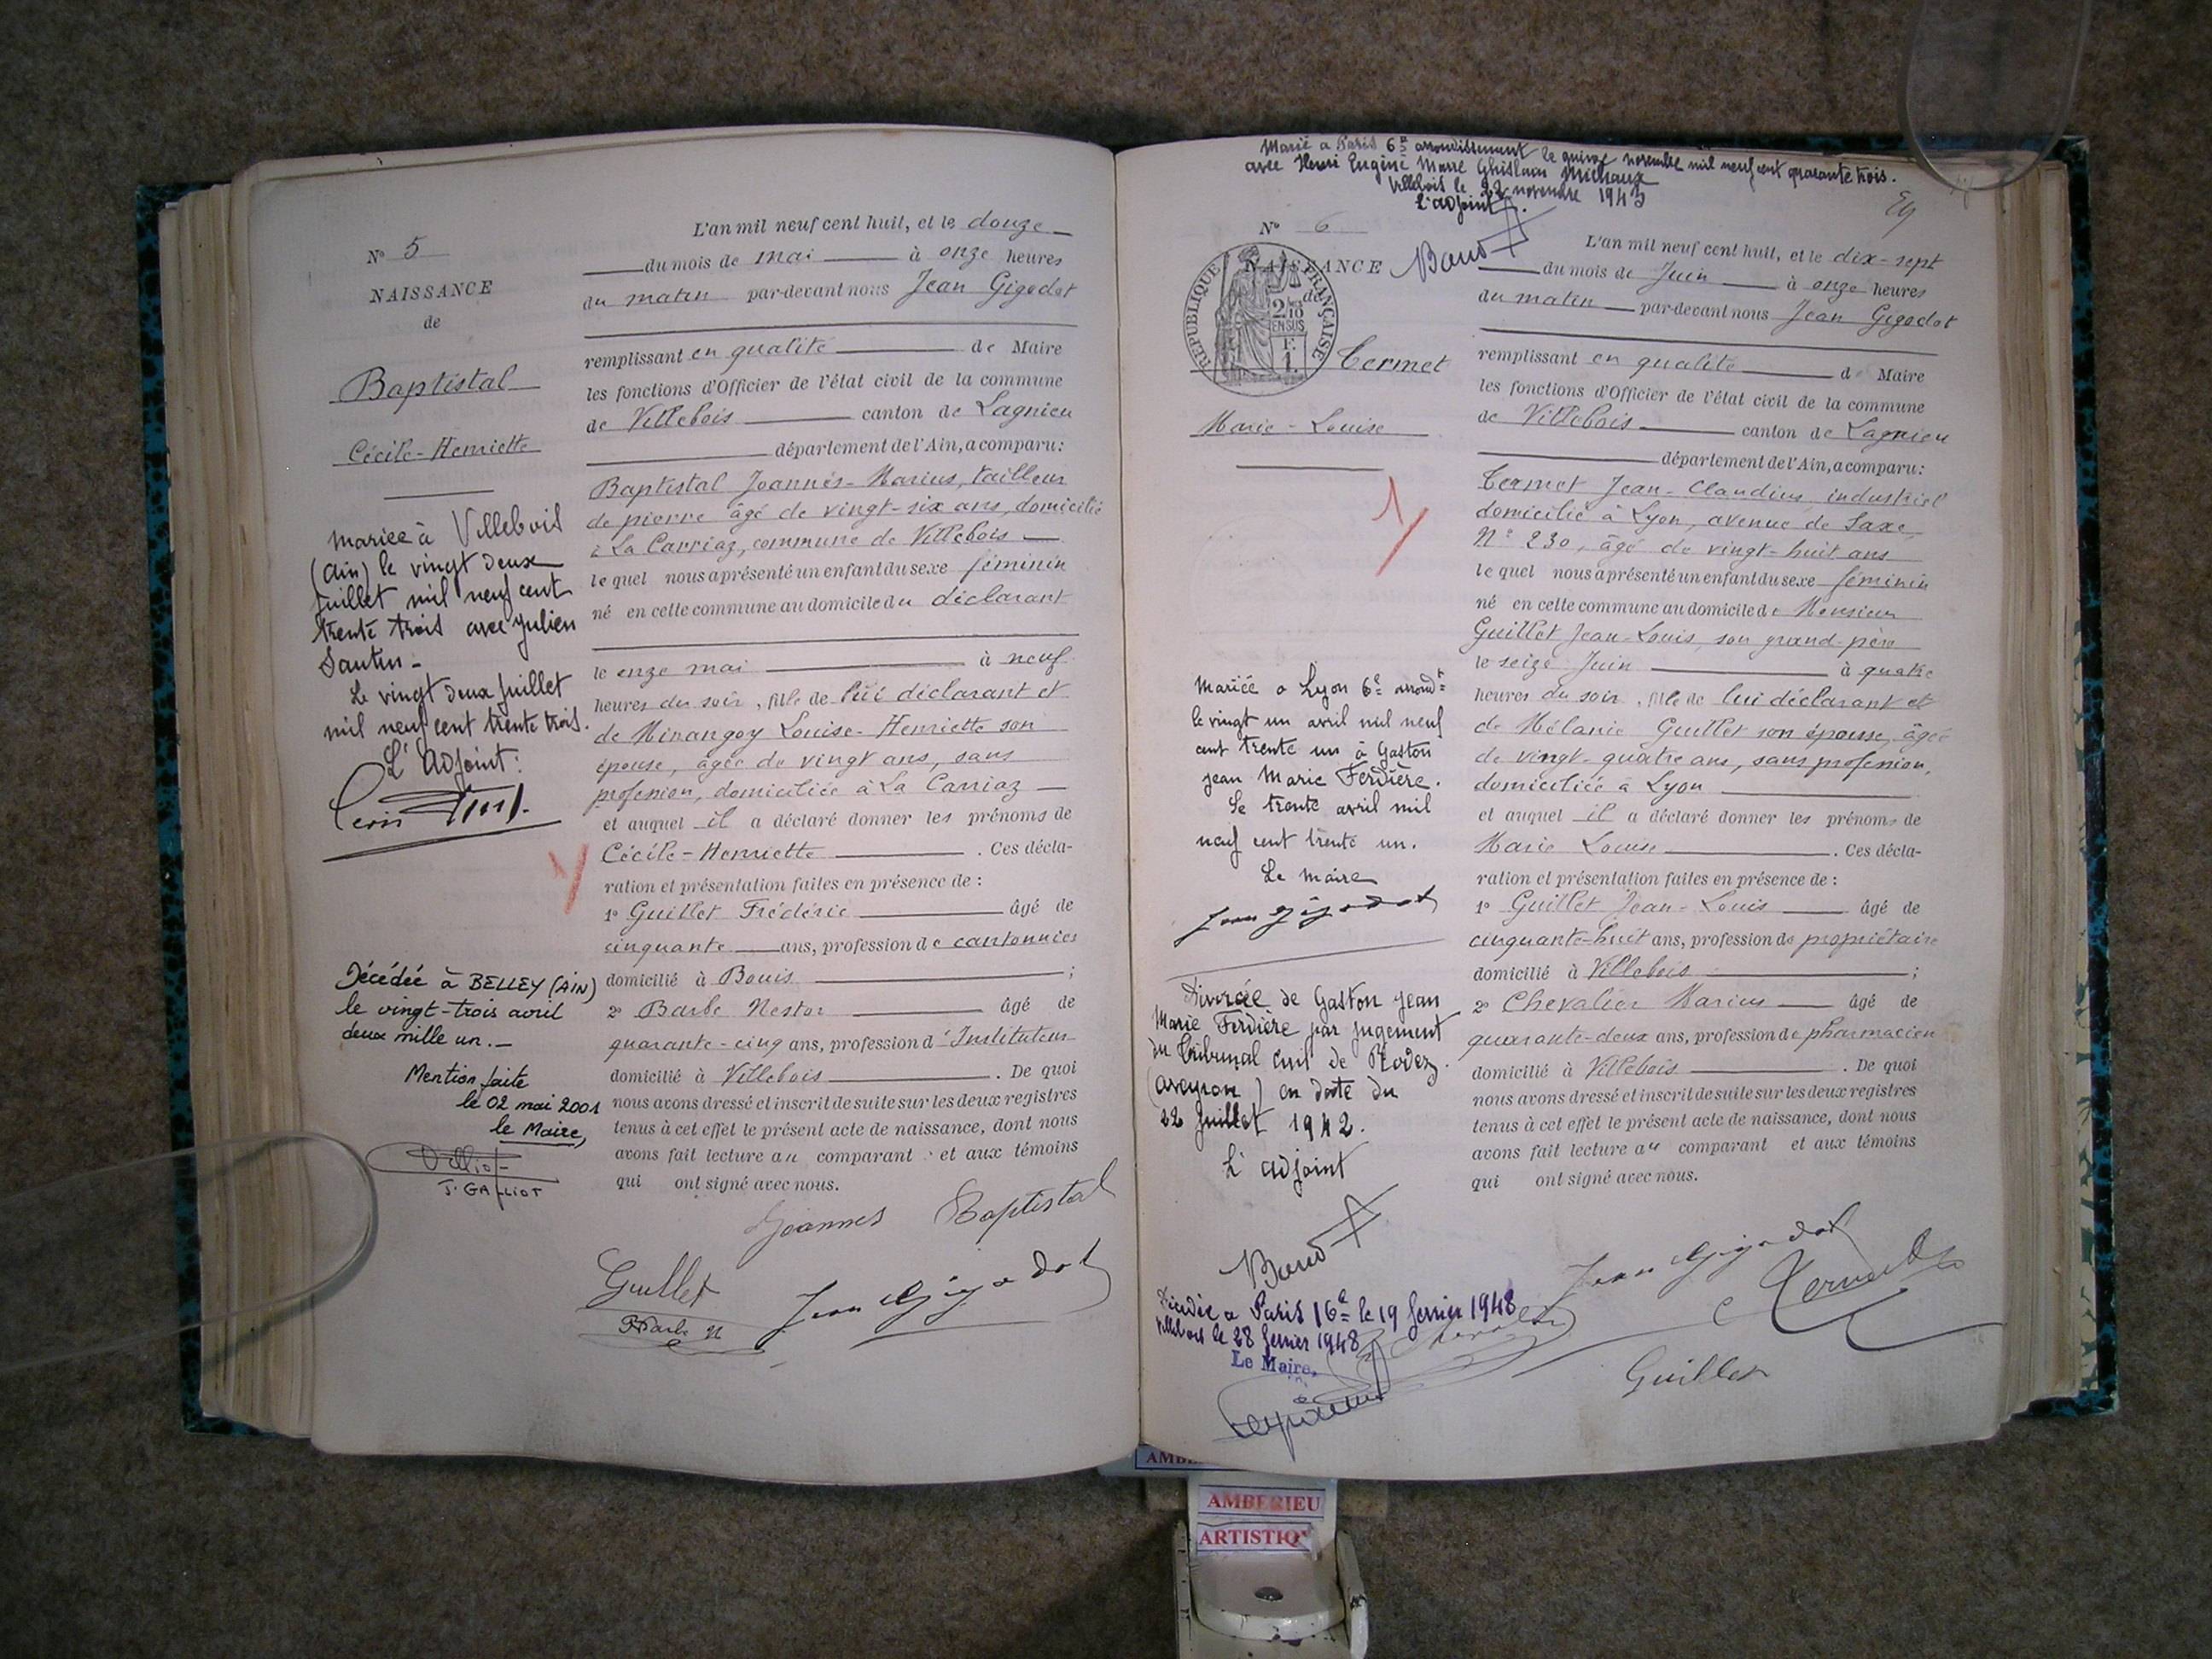 N° 5
NAISSANCE
de
Baptistal
Cécile-Henriette
Mariée à Villebois
(Ain) le vingt deux
juillet mil neuf cent
trente trois avec Julien
Santin-
Le vingt deux juillet
mil neuf cent trente trois.
L'Adjoint:
Décédée à BELLEY (AIN)
le vingt-trois avril
deux mille un.-
Mention faite
le 02 mai 2001
le Maire,
J. GALLIOT
L'an mil neuf cent huit, et le douze
du mois de mai à onze heures
du matin par-devant nous Jean Gigodot
remplissant en qualité de Maire
les fonctions d'Officier de l'état civil de la commune
de Villebois canton de Lagnieu
département de l'Ain, a comparu:
Baptistal Joannès-Marius, tailleur
de pierre âgé de vingt-six ans, domicilié
à La Carriaz, commune de Villebois
lequel nous a présenté un enfant du sexe féminin
né en cette commune au domicile du déclarant
le onze mai à neuf
heures du soir, fille de lui déclarant et
de Minangoy Louise-Henriette son
épouse, âgée de vingt ans, sans
profession, domiciliée à La Carriaz
et auquel il a déclaré donner les prénoms de
Cécile-Henriette . Ces décla-
ration et présentation faites en présence de :
1° Guillet Frédéric âgé de
cinquante ans, profession de cantonnier
domicilié à Bouis ;
2° Barbe Nestor âgé de
quarante-cinq ans, profession d'Instituteur
domicilié à Villebois . De quoi
nous avons dressé et inscrit de suite sur les deux registres
tenus à cet effet le présent acte de naissance, dont nous
avons fait lecture au comparant et aux témoins
qui ont signé avec nous.
Joannes Baptistal
Guillet
Jean Gigodot
Barbe N
Marié a Paris 6e arrondissement le quinze novembre mil neuf cent quarante trois.
avec Henri Eugène Marie Ghislain Michaux
Villebois le 22 novembre 1943
L'adjoint
N° 6
NAISSANCE
de
RÉPUBLIQUE FRANÇAISE
2/10
EN SUS
F.
1.
Termet
Marie-Louise
Mariée a Lyon 6e arrondt
le vingt un avril mil neuf
cent trente un à Gaston
Jean Marie Ferdière.
Le trente avril mil
neuf cent trente un.
Le maire
Jean Gigodot
Divorcée de Gaston Jean
Marie Ferdière par jugement
du Tribunal civil de Rodez
(Aveyron) en date du
22 Juillet 1942.
L'adjoint
Décédée a Paris 16e le 19 fevrier 1948
Villebois le 28 fevrier 1948
Le Maire,
L'an mil neuf cent huit, et le dix-sept
du mois de Juin à onze heures
du matin par-devant nous Jean Gigodot
remplissant en qualité de Maire
les fonctions d'Officier de l'état civil de la commune
de Villebois canton de Lagnieu
département de l'Ain, a comparu:
Termet Jean-Claudius industriel
domicilié à Lyon, avenue de Saxe,
N° 230, âgé de vingt-huit ans
lequel nous a présenté un enfant du sexe féminin
né en cette commune au domicile de Monsieur
Guillet Jean-Louis, son grand-père
le seize Juin à quatre
heures du soir, fille de lui déclarant et
de Mélanie Guillet son épouse, âgée
de vingt-quatre ans, sans profession,
domiciliée à Lyon
et auquel il a déclaré donner les prénoms de
Marie Louise . Ces décla-
ration et présentation faites en présence de :
1° Guillet Jean-Louis âgé de
cinquante-huit ans, profession de propriétaire
domicilié à Villebois ;
2° Chevalier Marius âgé de
quarante-deux ans, profession de pharmacien
domicilié à Villebois . De quoi
nous avons dressé et inscrit de suite sur les deux registres
tenus à cet effet le présent acte de naissance, dont nous
avons fait lecture au comparant et aux témoins
qui ont signé avec nous.
Jean Gigodot
Guillet
AMBERIEU
ARTISTIQ